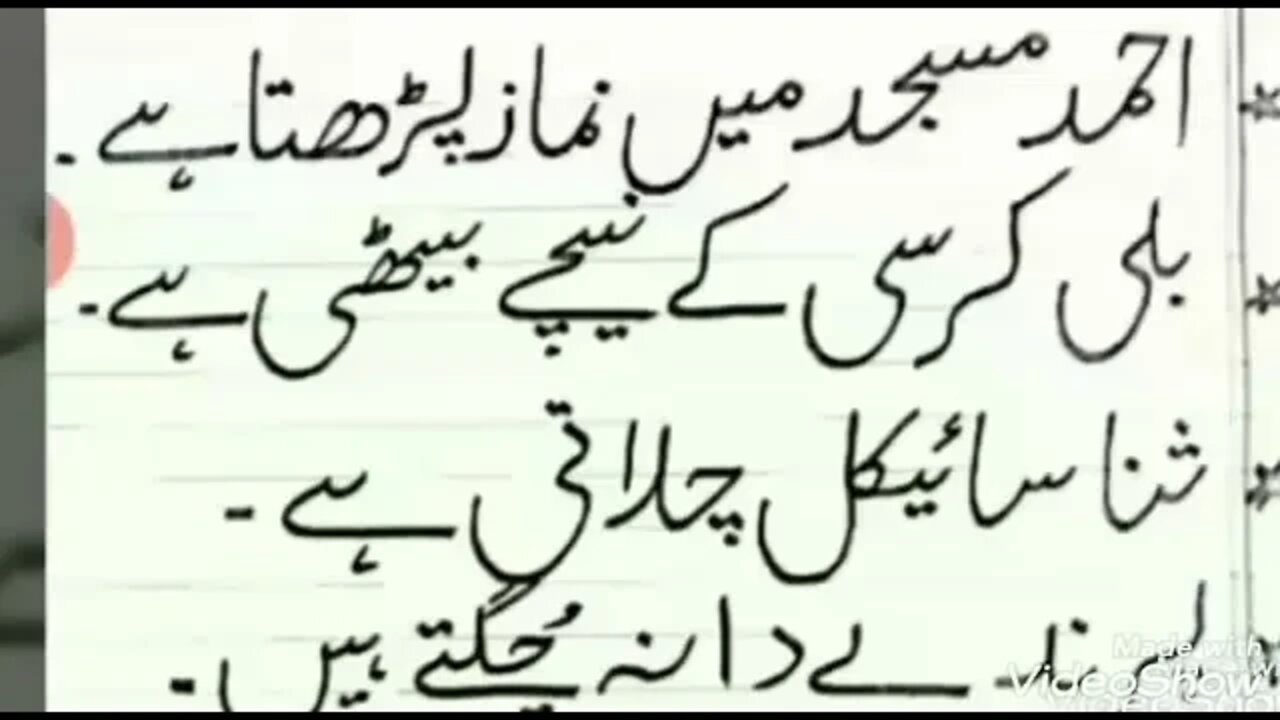 احمد مسجد میں نماز پڑھتا ہے۔
بلی کرسی کے نیچے بیٹھی ہے۔
ثنا سائیکل چلاتی ہے۔
دانہ چُگتے ہیں۔
Made with
VideoShow